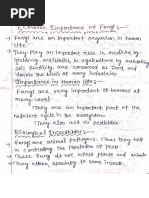 Economic Importance of Fungi :-
→ Fungi are an important organism in human
life.
→ They Play an important role in medicine by
yielding antibiotics, in agriculture by maintaining
soil fertility, are consumed as food and
forms the basis of many industries
Importance in Human life:-
Fungi are very important to humans at
many level.
→ They are an important part of the
nutrient cycle in the ecosystem
They also act as pesticides.
Biological Insecticides:-
→ Fungi are animal pathogens. Thus they help
in controlling the population of pests
→ These Fungi do not infect plants and animals.
→ They attack specifically to some insects.